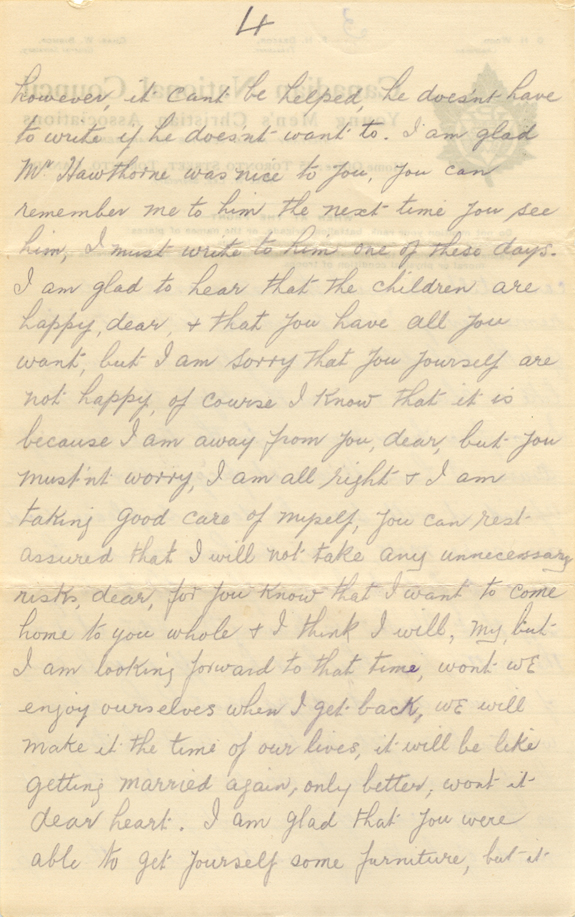 4
however, it cant be helped, he does'nt have
to write if he does'nt want to. I am glad
Mr Hawthorne was nice to you, you can
remember me to him the next time you see
him, I must write to him one of these days.
I am glad to hear that the children are
happy, dear, & that you have all you
want, but I am sorry that you yourself are
not happy, of course I know that it is
because I am away from you, dear, but you
must'nt worry, I am all right & I am
taking good care of myself, you can rest
assured that I will not take any unnecessary
risks, dear, for you know that I want to come
home to you whole & I think I will, my, but
I am looking forward to that time, wont we
enjoy ourselves when I get back, we will
make it the time of our lives, it will be like
getting married again, only better, wont it
dear heart. I am glad that you were
able to get yourself some furniture, but it